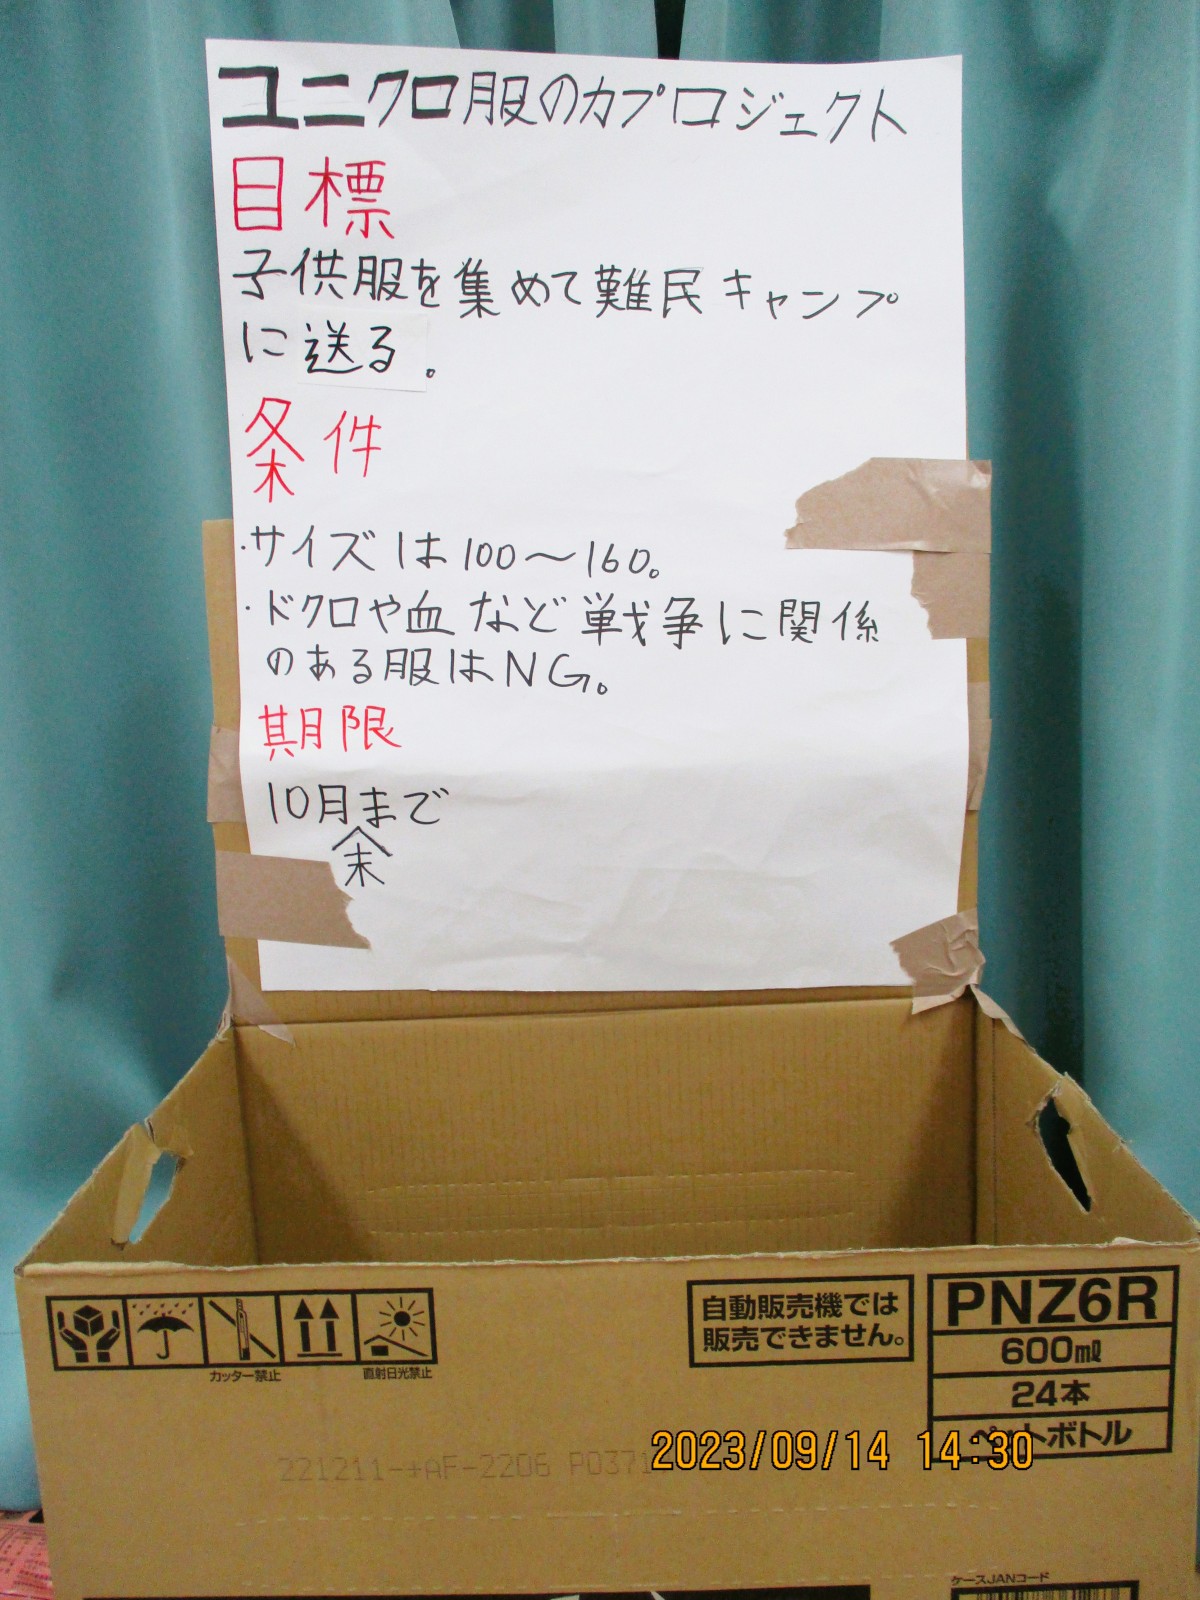 ユニクロ服のカプロジェクト
目標
子供服を集めて難民キャンプ
に送る。
条件
・サイズは100～160。
・ドクロや血など戦争に関係
のある服はNG。
期限
10月まで
末
カッター禁止
直射日光禁止
自動販売機では
販売できません。
PNZ6R
600ml
24本
ペットボトル
221211-+AF-2206 P0371
2023/09/14 14:30
ケースJANコード